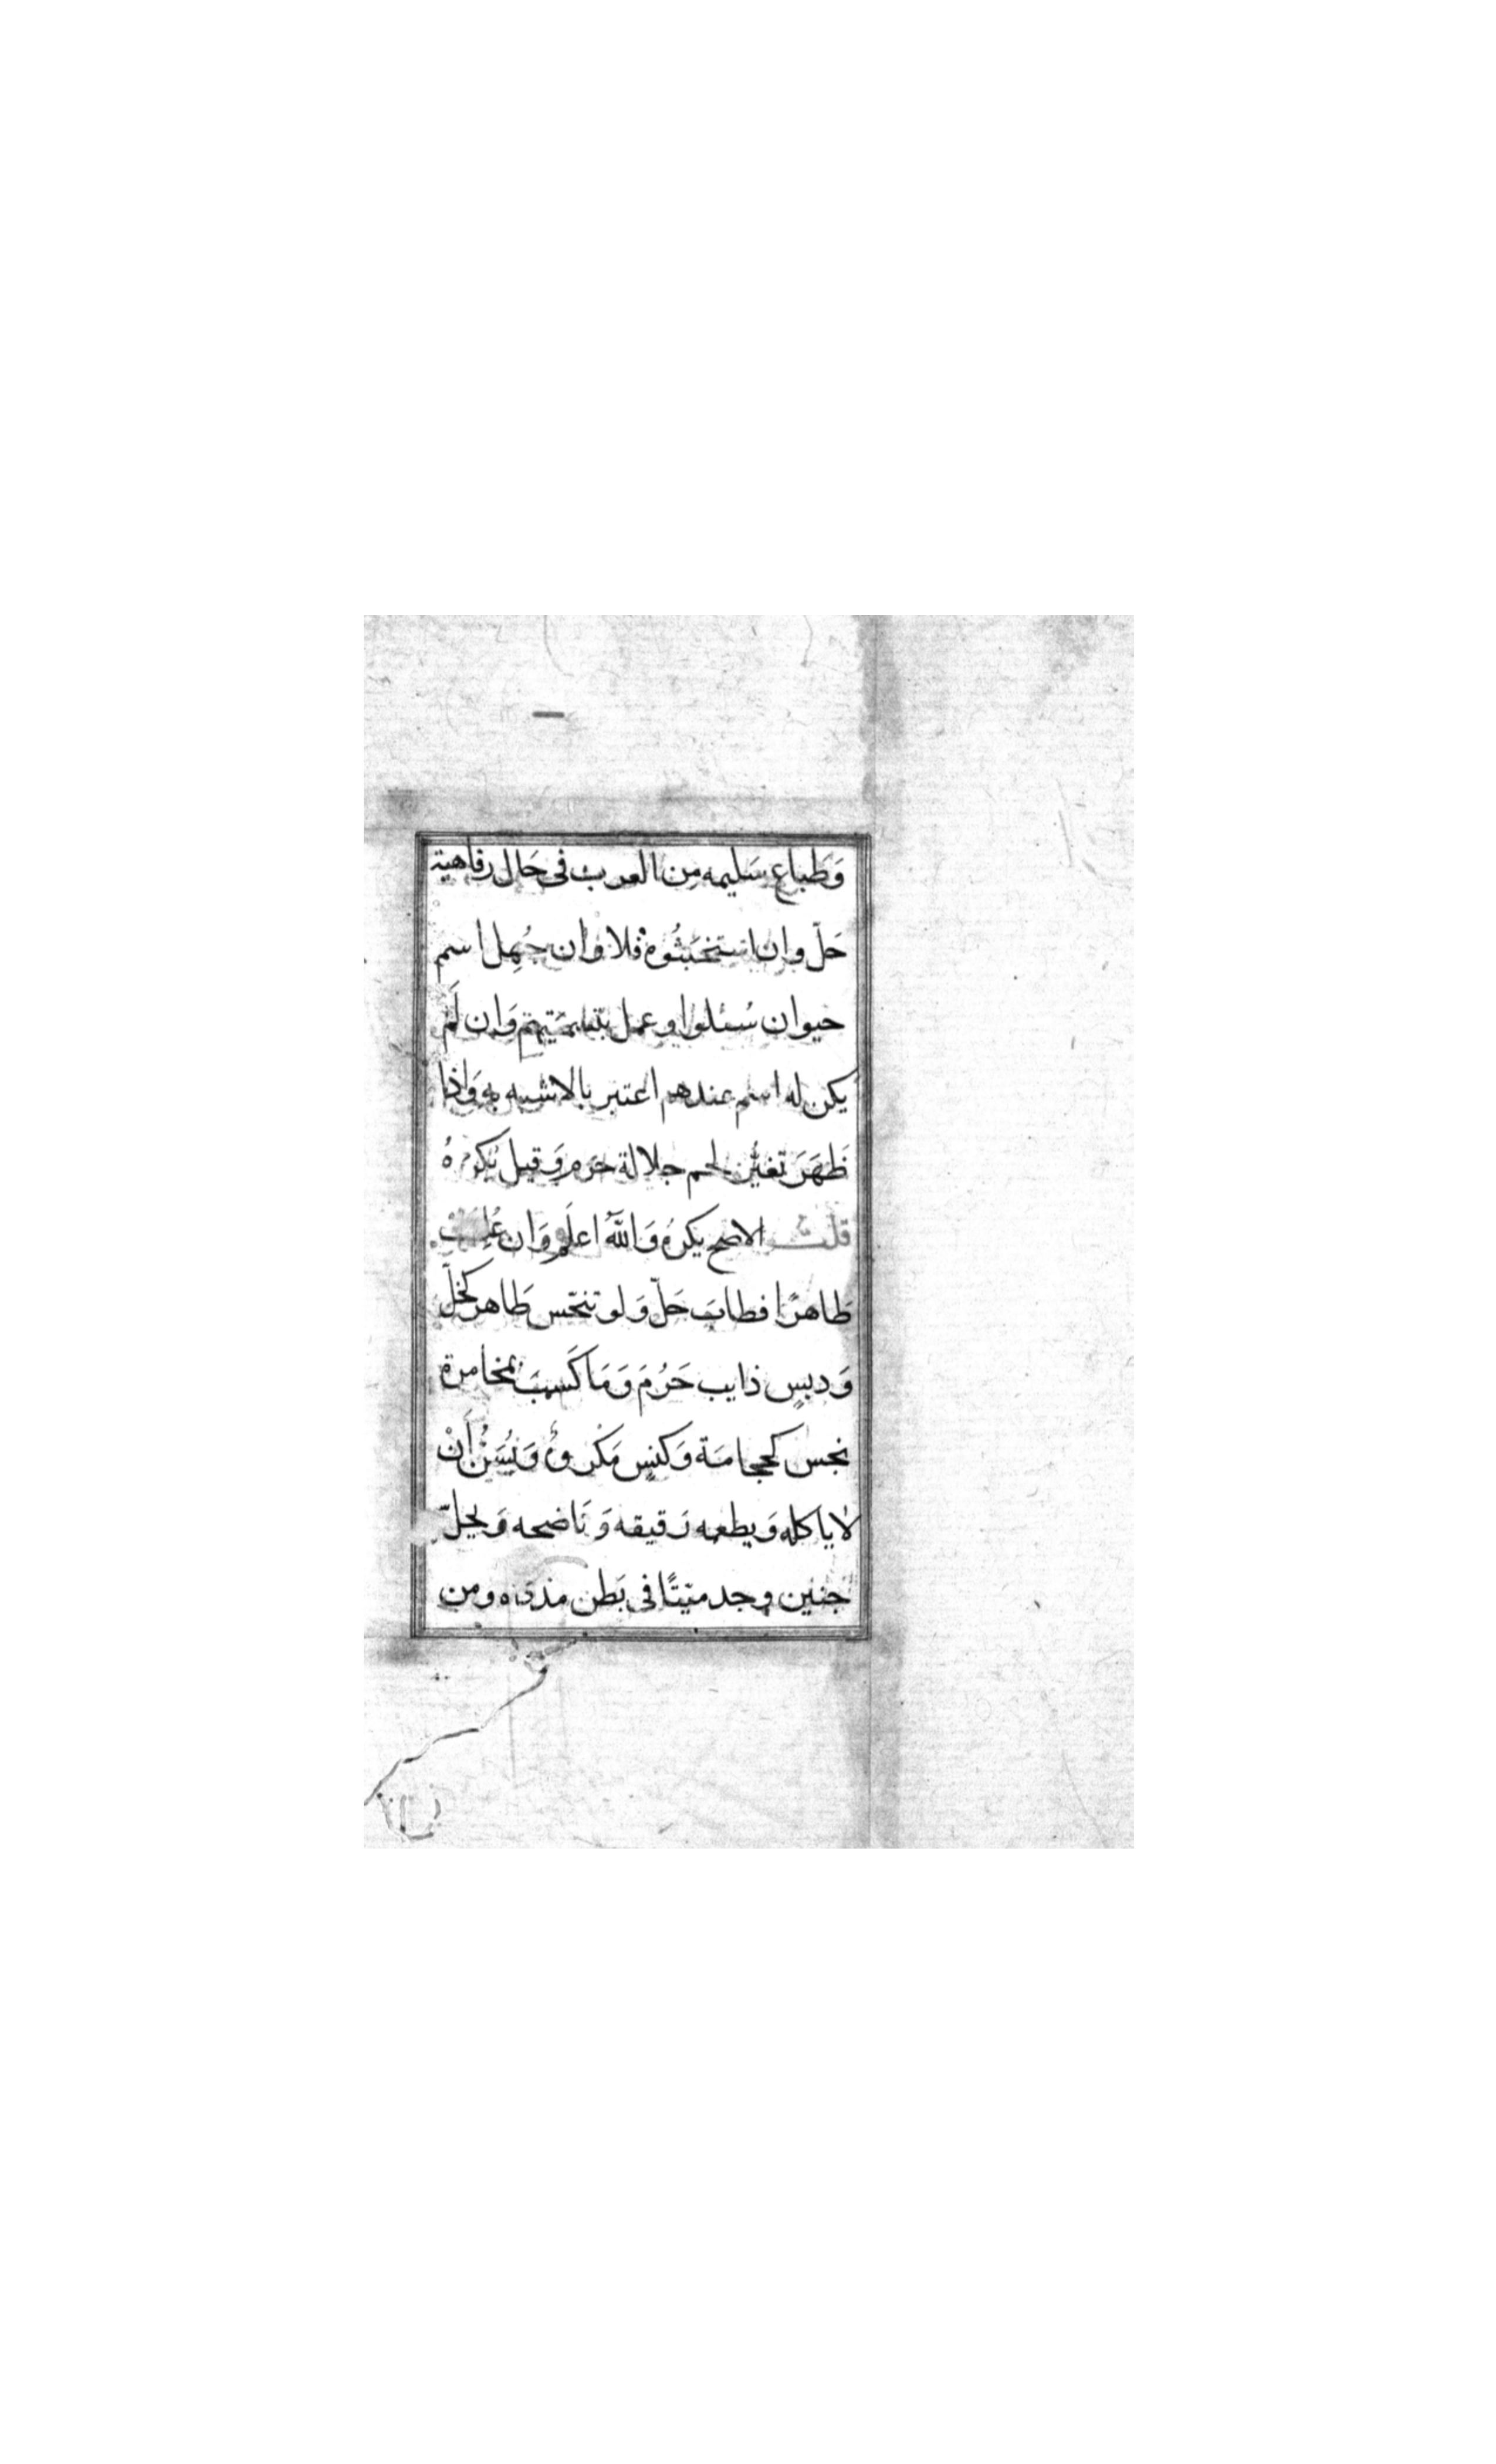 وَطباع سَليمه من العرب فى حَال رفاهية
حَلّ وان استخبَثُوه فلا وان جُهِل اسم
حيوان سُئلوا وعمل بتسميَتِهم وَان لَم
يكن له اسم عندهم اعتبر بالاشبه به وَاذا
ظَهَرَ تغيُّر لحم جلالة حَرم وَقيل يُكرَهُ
قلت الاصح يكرهُ وَاللهُ اعلَم وَان عُلِفَت
طَاهرًا فطابَ حَلّ وَلو تنجّس طَاهر كخلّ
وَدبسٍ ذايب حَرُمَ وَمَا كَسبَ بمُخامرة
نجس كحجامَة وَكنسٍ مَكْروهٌ وَيُسَنُّ أَنْ
لا ياكله وَيطعمه رَقيقه وَنَاضحه وَيحلّ
جنين وجد ميّتًا فى بَطن مذكاه ومن